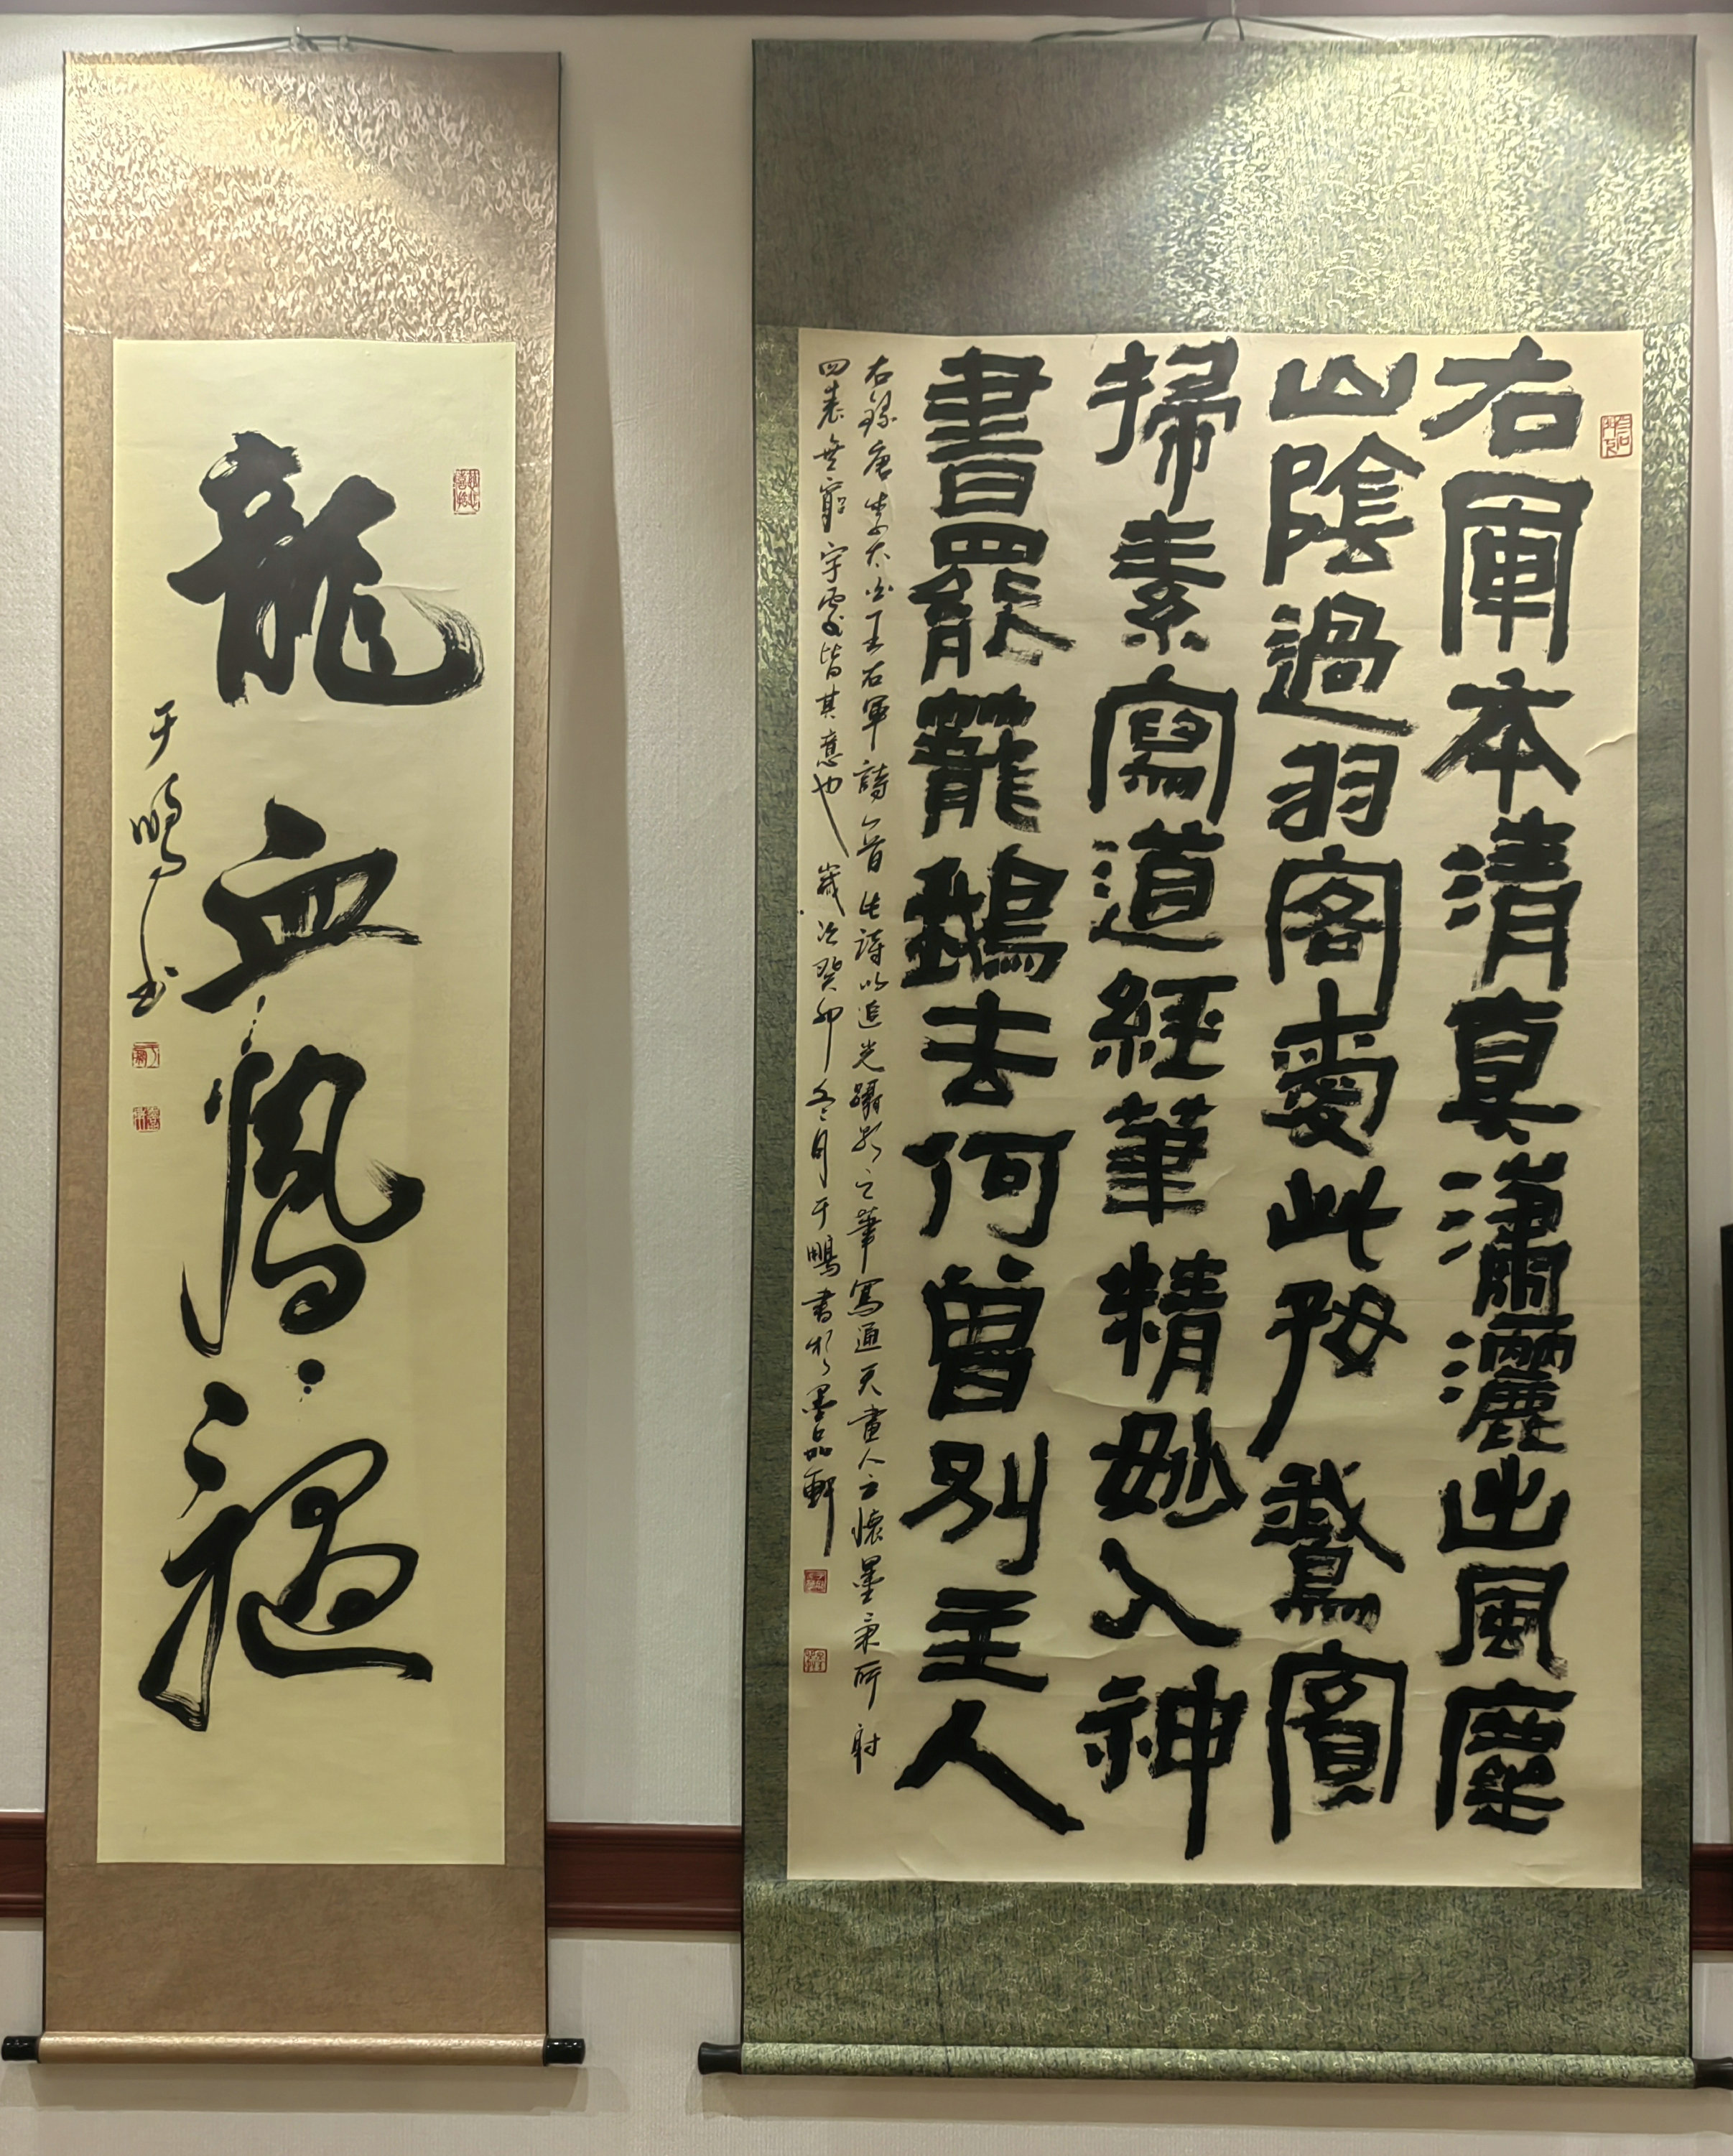 右軍本清真瀟灑出風塵
山陰過羽客愛此好鵞賓
掃素寫道經筆精妙入神
書罷籠鵝去何曾別主人
右錄唐李太白王右軍詩一首此詩以追光躡影之筆寫通天盡人之懷墨氣所射
四表無窮字處皆其意也歲次癸卯冬月于鵬書於墨品軒
龍血
于鵬書